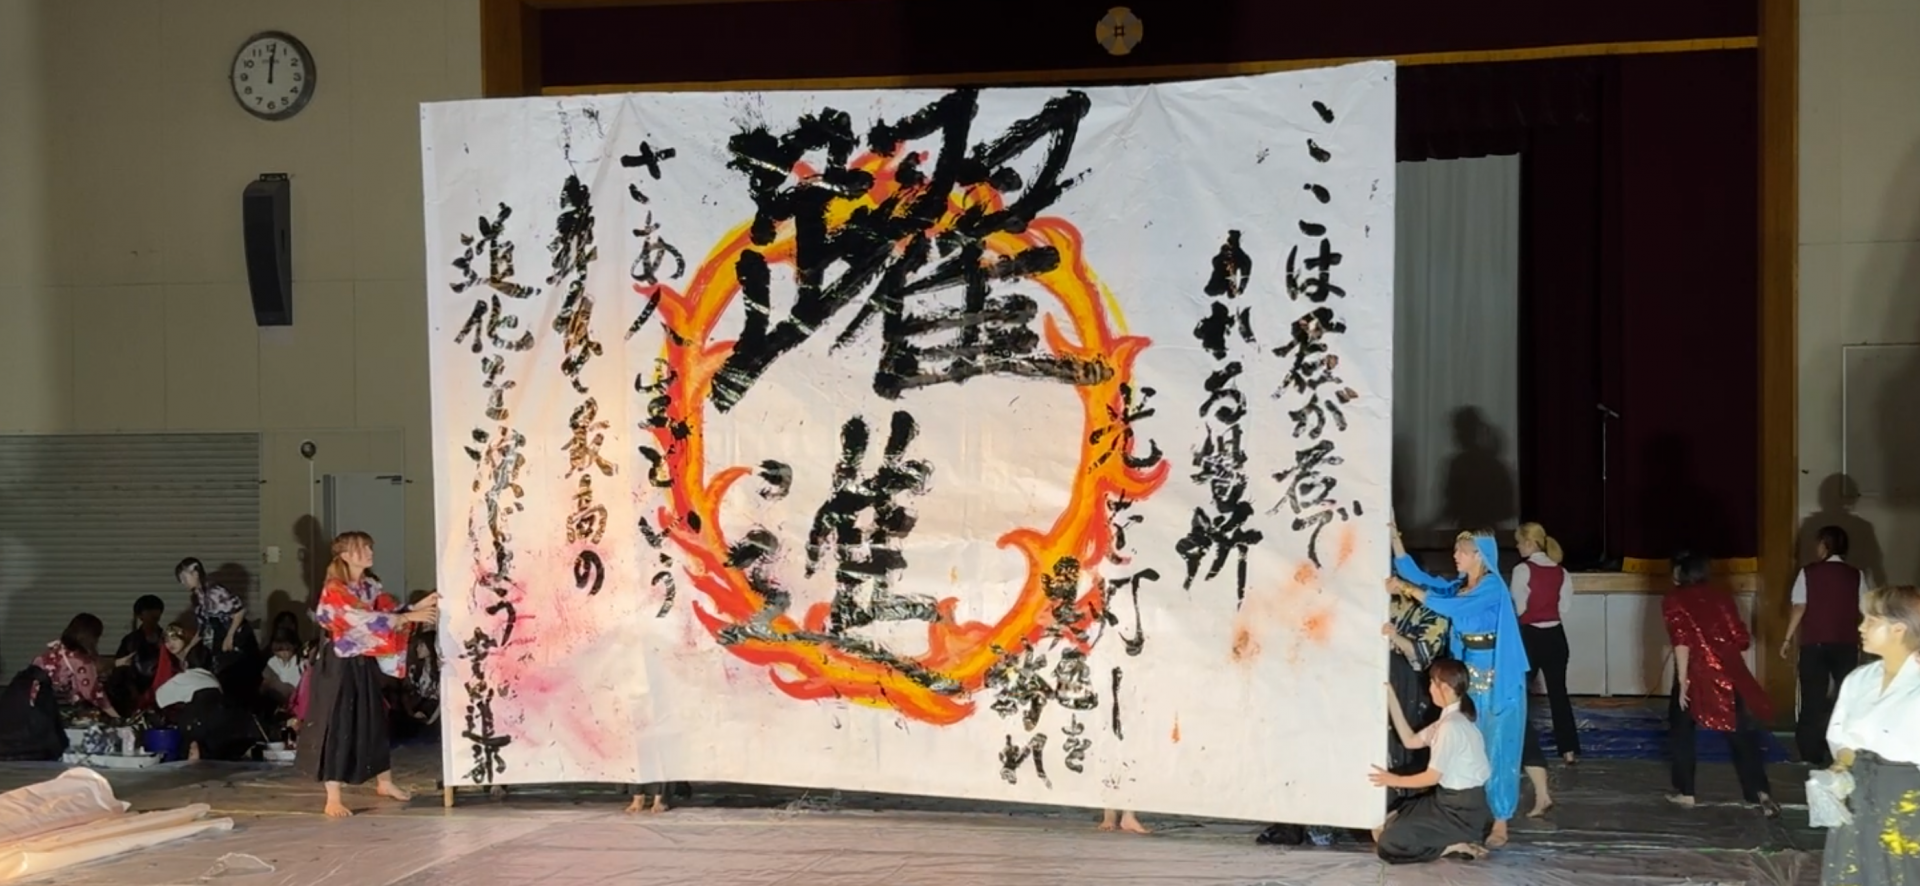 ここは君が君で
あれる場所
光を灯し
異色を
誇れ
躍進
さあ人生という
最高の
進化を演じよう
書道部